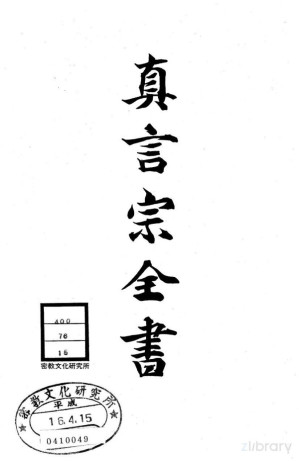 真言宗全書
400
76
16
密教文化研究所
密教文化研究所
平成
16.4.15
0410049
zlibrary